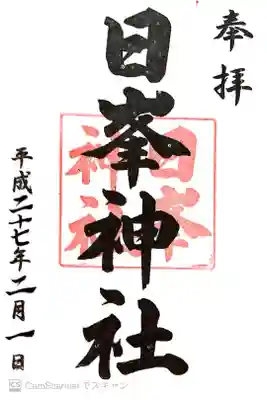 奉拝
日峯神社
日峯
神社
平成二十七年二月一日
CS CamScanner でスキャン